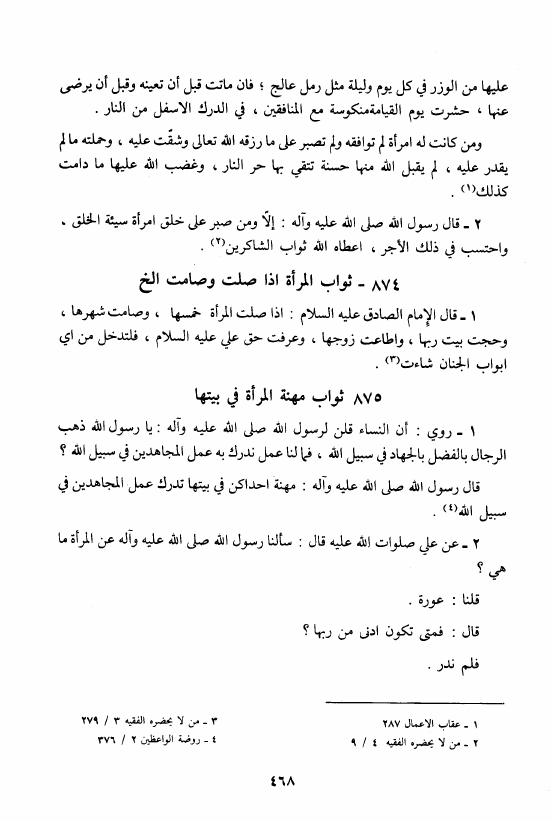 عليها من الوزر في كل يوم وليلة مثل رمل عالج ؛ فان ماتت قبل أن تعينه وقبل أن يرضى
عنها ، حشرت يوم القيامة منكوسة مع المنافقين ، في الدرك الاسفل من النار .
ومن كانت له امرأة لم توافقه ولم تصبر على ما رزقه الله تعالى وشقّت عليه ، وحملته ما لم
يقدر عليه ، لم يقبل الله منها حسنة تتقي بها حر النار ، وغضب الله عليها ما دامت
كذلك(١) .
٢ ـ قال رسول الله صلى الله عليه وآله : إلّا ومن صبر على خلق امرأة سيئة الخلق ،
واحتسب في ذلك الأجر ، اعطاه الله ثواب الشاكرين(٢) .
٨٧٤ - ثواب المرأة اذا صلت وصامت الخ
١ ـ قال الإمام الصادق عليه السلام : اذا صلت المرأة خمسها ، وصامت شهرها ،
وحجت بيت ربها ، واطاعت زوجها ، وعرفت حق علي عليه السلام ، فلتدخل من اي
ابواب الجنان شاءت(٣) .
٨٧٥ ثواب مهنة المرأة في بيتها
١ ـ روي : أن النساء قلن لرسول الله صلى الله عليه وآله : يا رسول الله ذهب
الرجال بالفضل بالجهاد في سبيل الله ، فما لنا عمل ندرك به عمل المجاهدين في سبيل الله ؟
قال رسول الله صلى الله عليه وآله : مهنة احداكن في بيتها تدرك عمل المجاهدين في
سبيل الله(٤) .
٢ ـ عن علي صلوات الله عليه قال : سألنا رسول الله صلى الله عليه وآله عن المرأة ما
هي ؟
قلنا : عورة .
قال : فمتى تكون ادنى من ربها ؟
فلم ندر .
١ ـ عقاب الاعمال ٢٨٧
٢ ـ من لا يحضره الفقيه ٤ / ٩
٣ ـ من لا يحضره الفقيه ٣ / ٢٧٩
٤ ـ روضة الواعظين ٢ / ٣٧٦
٤٦٨